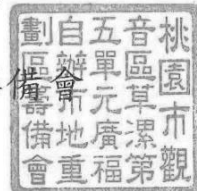 備會
桃園市觀
音區草漯第
五單元廣福
自辦市地重
劃區籌備會